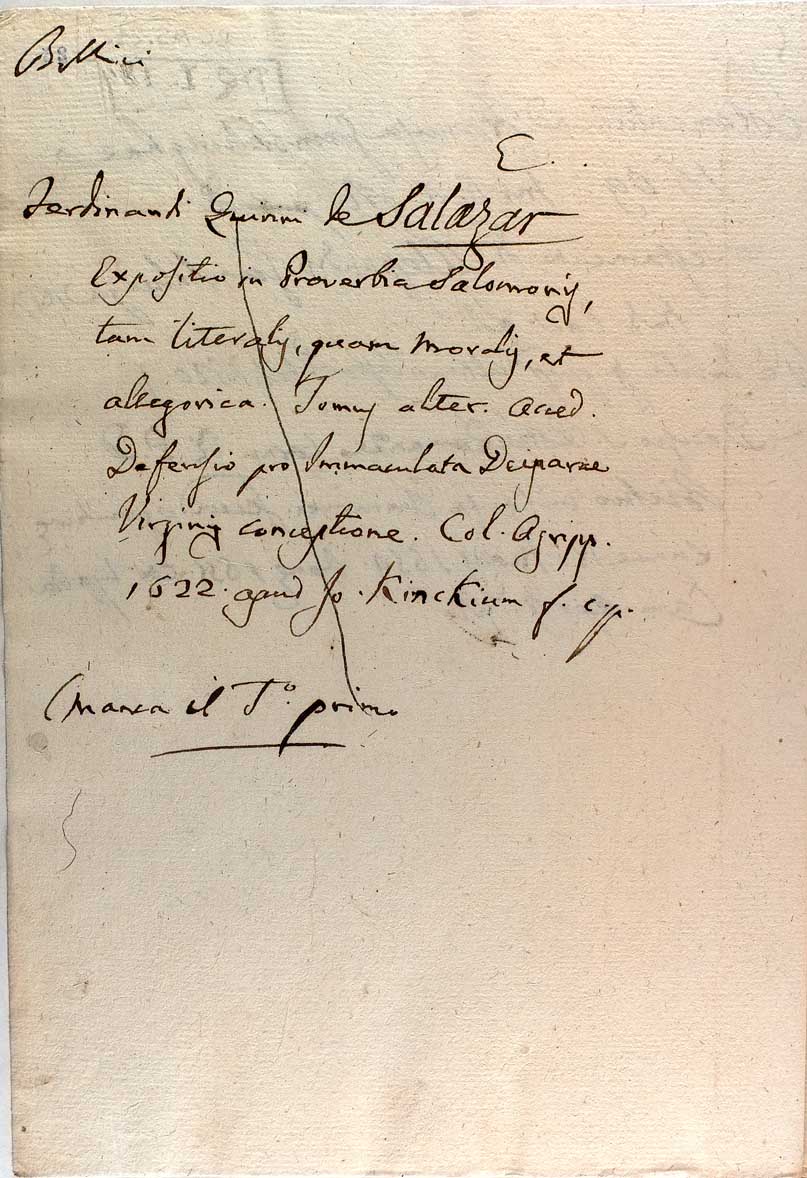 E.
Ferdinandi Quirini de Salazar
Expositio in Proverbia Salomonis,
tam literalis, quam moralis, et
allegorica. Tomus alter. Acced.
Defensio pro Immaculata Deiparae
Virginis conceptione. Col. Agripp.
1622. apud Jo. Kinckium f. c.p.
(manca il T.º primo